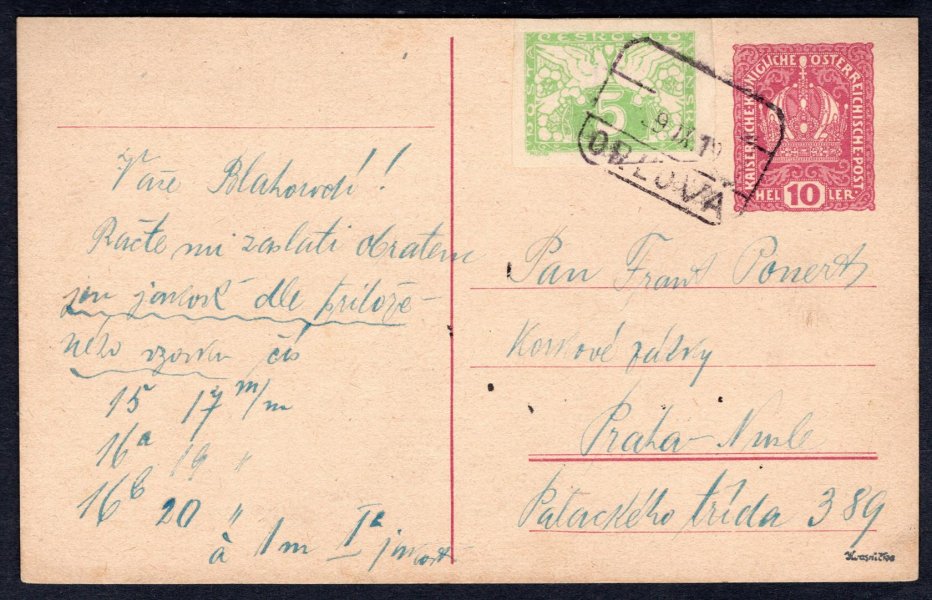 Vaše Blahorodí!
Račte mi zaslati obratem
jen jakost dle přilože-
ného vzorku čís
15 17 m/m
16a 19 "
16b 20 "
à 1m Ia jakost
ČESKOSLO
5
9 IX 19
KAISERLICHE KÖNIGLICHE ÖSTERREICHISCHE POST
HEL 10 LER
Pan Frant Ponert
Korkové zátky
Praha-Nusle
Palackého třída 389